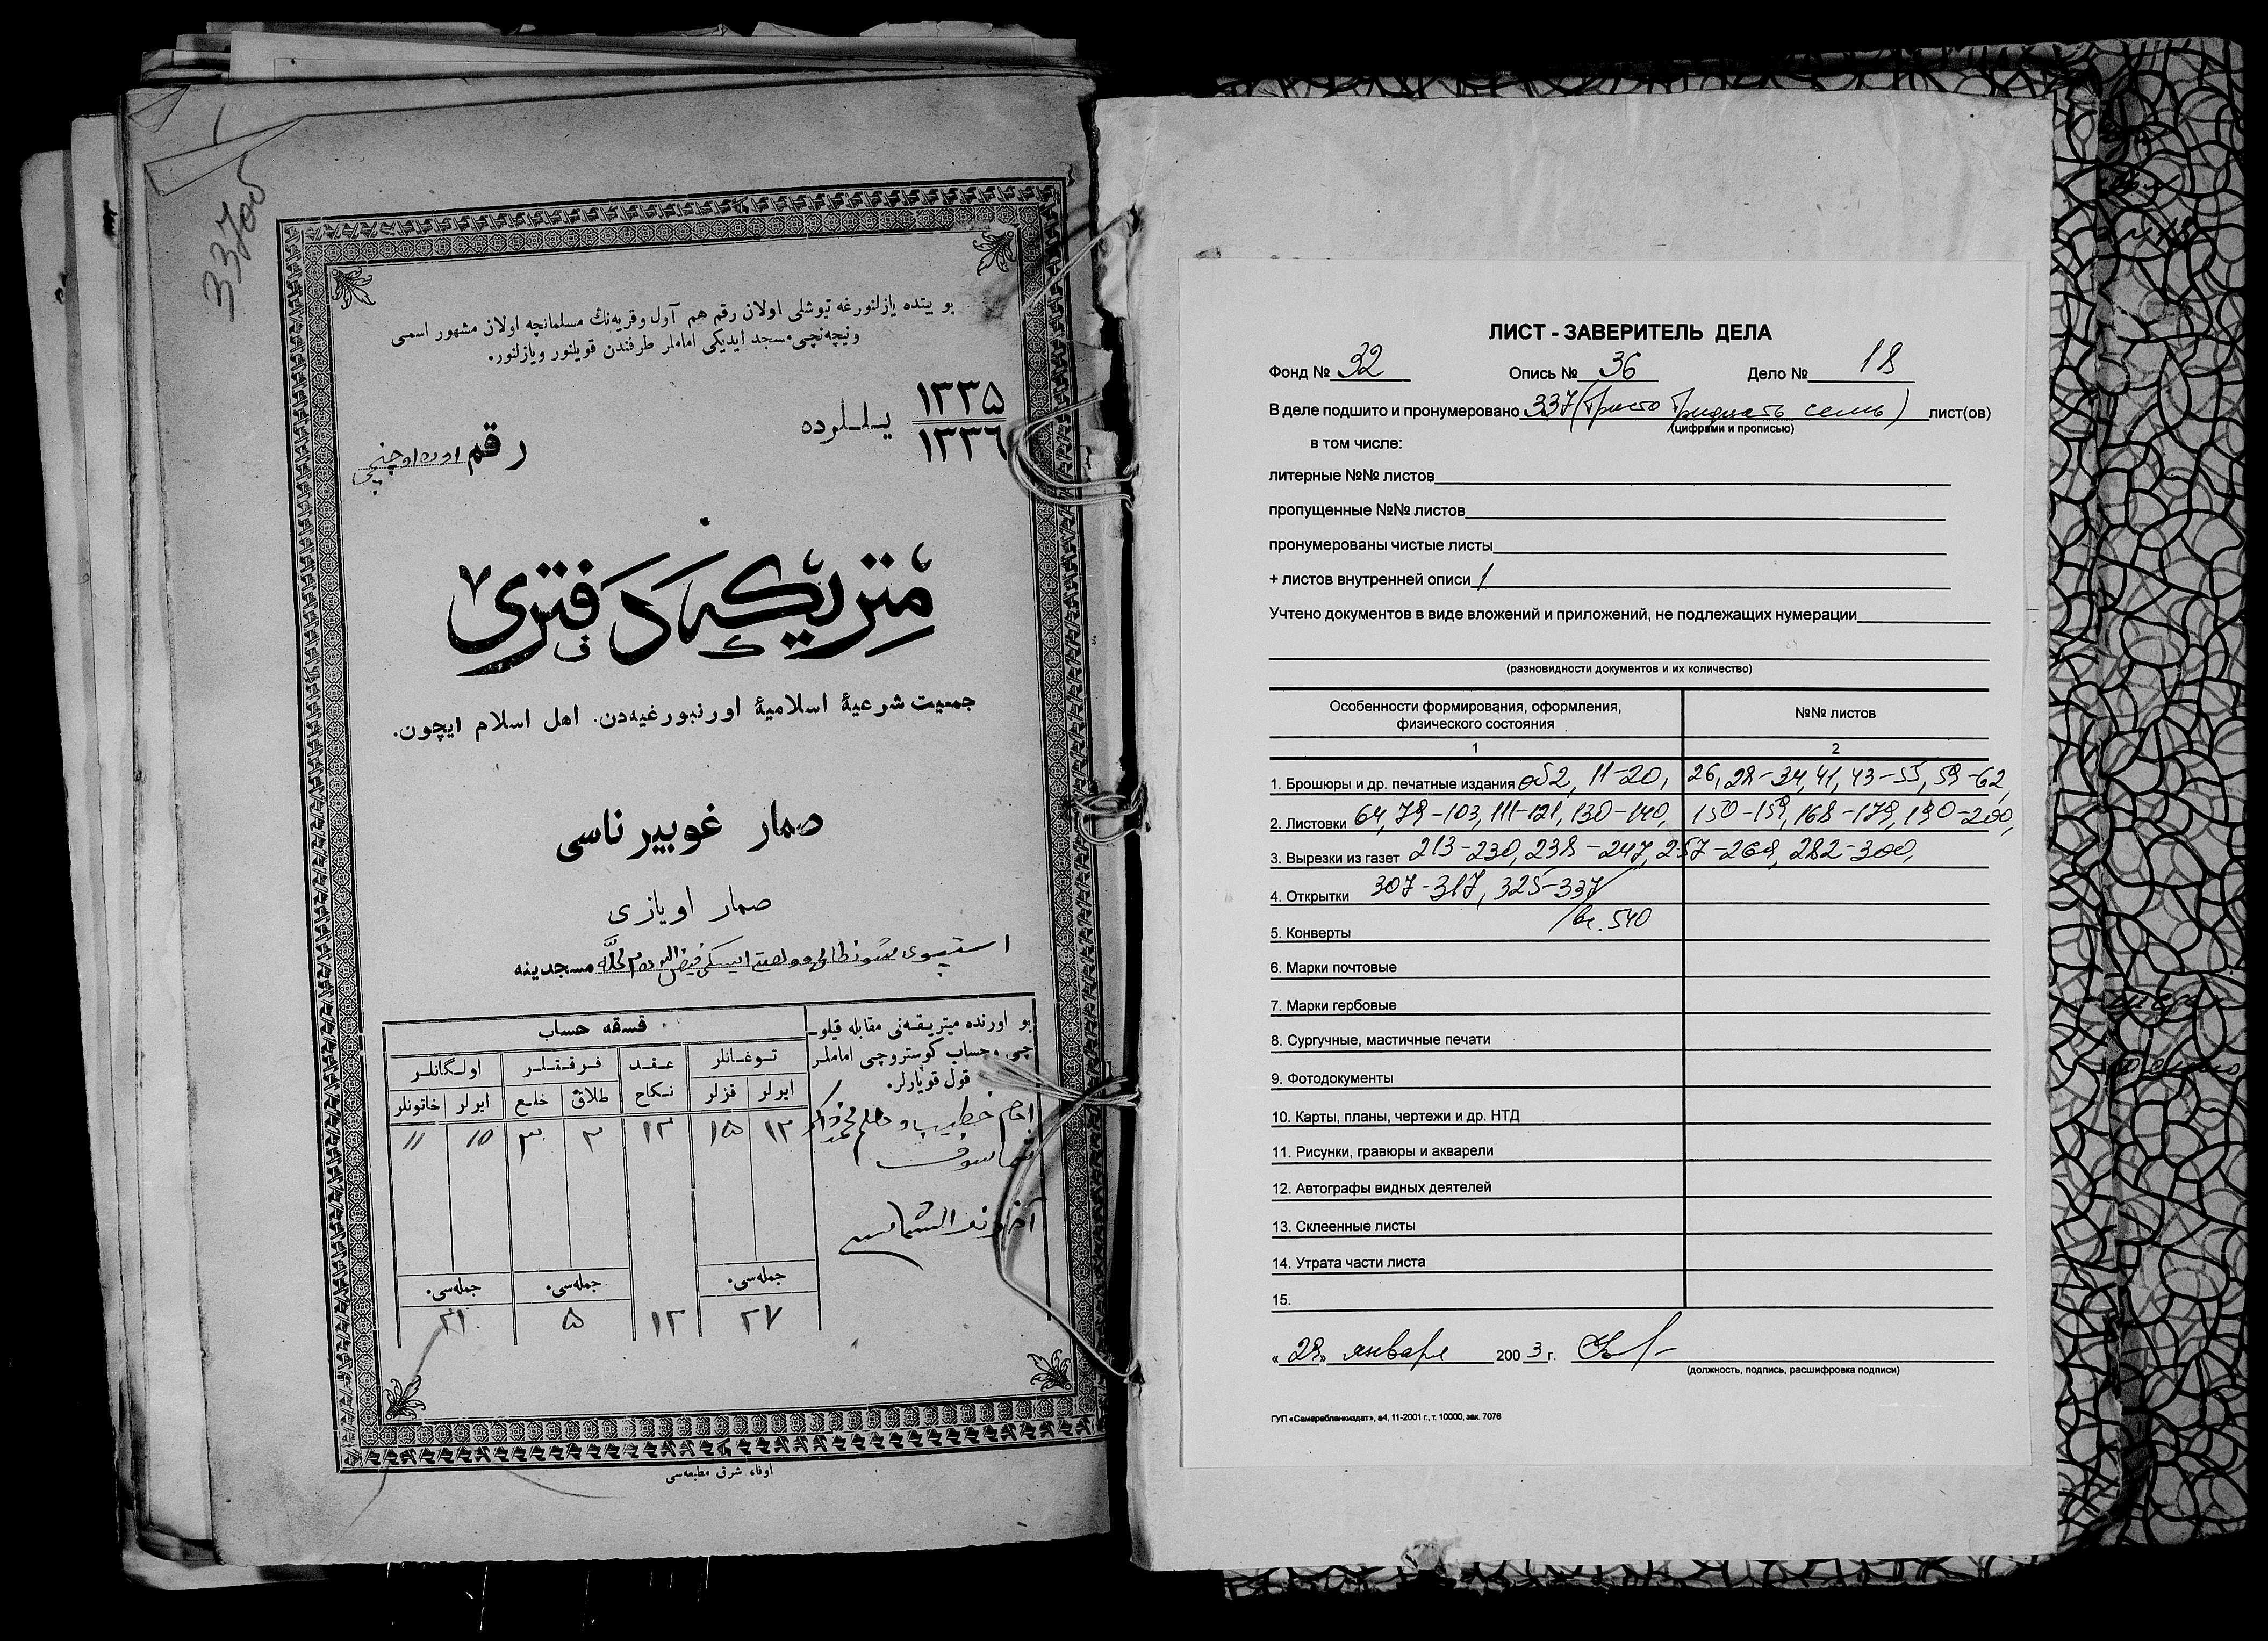 337об
بو بیتده یازلنورغه تیوشلی اولان رقم هم آول وقریه‌نڭ مسلمانچه اولان مشهور اسمی
ونیچه‌نچی مسجد ایدیکی اماملر طرفندن قویلنور ویازلنور.
١٣٣٥
١٣٣٦
یـلـلـرده
رقم اون اوچنچی
متریکه دفتری
جمعیت شرعیهٔ اسلامیهٔ اورنبورغیه‌دن. اهل اسلام ایچون.
صمار غوبیرناسی
صمار اویازی
مسجدینه
بو اورنده میتریـقـه‌نی مقابله قیلوـ
چی وحساب کوستروچی اماملـر
قول قویارلر.
قسقه حساب
تـوغـانلر
عـقـد
فـرقـتـلـر
اولـگانلـر
ایرلر
قزلر
نـکاح
طلاق
خلـع
ایرلر
خاتونلر
١٢
١٥
١٢
٢
٣
١٥
١١
جمله‌سی.
جمله‌سی.
جمله‌سی.
٢٧
١٢
٥
٢١
اوفاء شرق مطبعه‌سی
ЛИСТ - ЗАВЕРИТЕЛЬ ДЕЛА
Фонд № 32 Опись № 36 Дело № 18
В деле подшито и пронумеровано 337 (триста тридцать семь) лист(ов)
(цифрами и прописью)
в том числе:
литерные №№ листов
пропущенные №№ листов
пронумерованы чистые листы
+ листов внутренней описи 1
Учтено документов в виде вложений и приложений, не подлежащих нумерации
(разновидности документов и их количество)
Особенности формирования, оформления,
физического состояния
№№ листов
1 2
1. Брошюры и др. печатные издания об2, 11-20, 26, 28-34, 41, 43-55, 59-62,
2. Листовки 64, 79-103, 111-121, 130-140, 150-159, 168-179, 190-200,
3. Вырезки из газет 213-230, 238-247, 257-269, 282-300,
4. Открытки 307-317, 325-337
5. Конверты 540
6. Марки почтовые
7. Марки гербовые
8. Сургучные, мастичные печати
9. Фотодокументы
10. Карты, планы, чертежи и др. НТД
11. Рисунки, гравюры и акварели
12. Автографы видных деятелей
13. Склеенные листы
14. Утрата части листа
15.
« 29 » января 2003 г.
(должность, подпись, расшифровка подписи)
ГУП «Самарабланкиздат», а4, 11-2001 г., т. 10000, зак. 7076